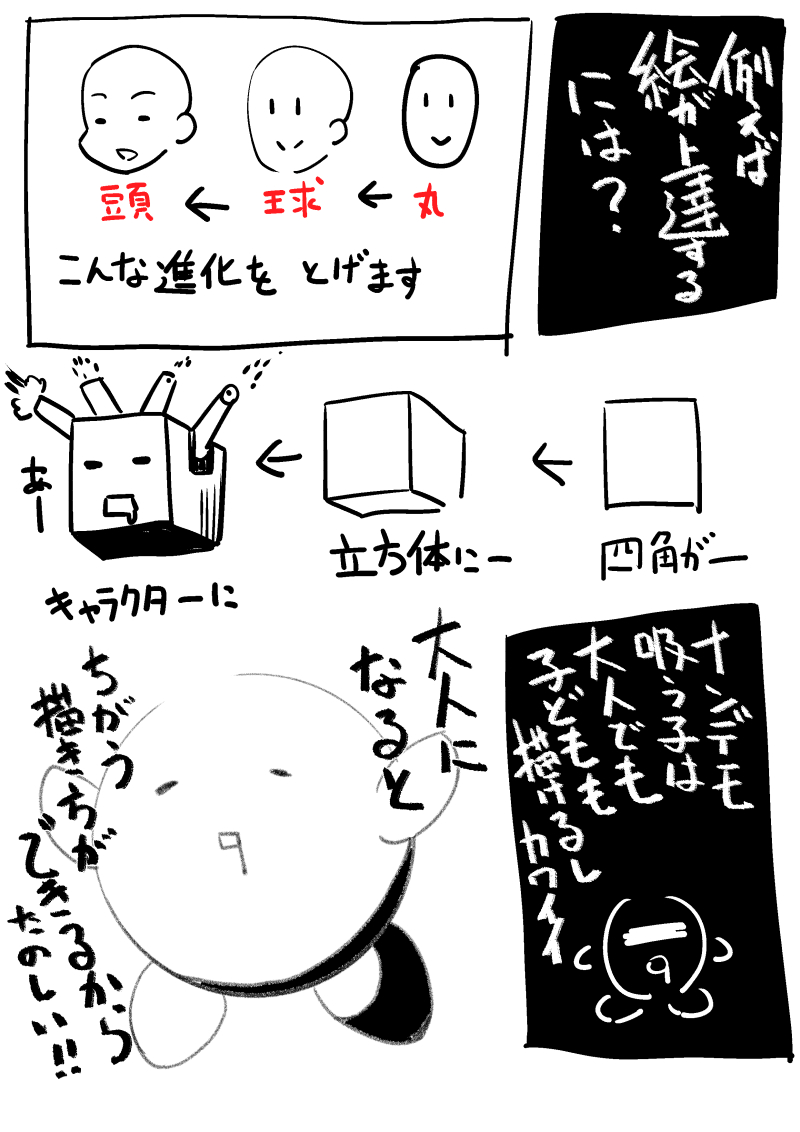 例えば
絵が上達する
には？
丸
←
球
←
頭
こんな進化を とげます
四角がー
←
立方体にー
←
あー
キャラクターに
ナンデモ
吸う子は
大人でも
子どもも
描けるし
カワイイ
大人に
なると
ちがう
描き方が
できるから
たのしい!!